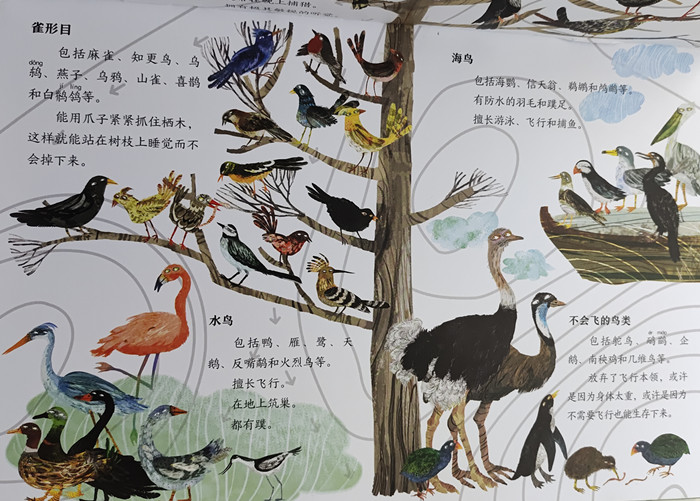 雀形目
包括麻雀、知更鸟、乌
dōng
鸫、燕子、乌鸦、山雀、喜鹊
jí líng
和白鹡鸰等。
能用爪子紧紧抓住栖木，
这样就能站在树枝上睡觉而不
会掉下来。
海鸟
包括海鹦、信天翁、鹈鹕和鸬鹚等。
有防水的羽毛和蹼足。
擅长游泳、飞行和捕鱼。
水鸟
包括鸭、雁、鹭、天
鹅、反嘴鹬和火烈鸟等。
擅长飞行。
在地上筑巢。
都有蹼。
不会飞的鸟类
包括鸵鸟、鸸鹋、企
鹅、南秧鸡和几维鸟等。
放弃了飞行本领，或许
是因为身体太重，或许是因为
不需要飞行也能生存下来。